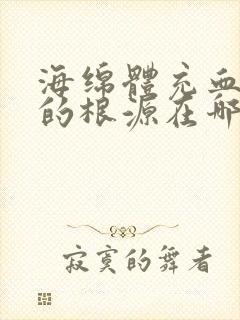 海绵體充血
的根源在哪
寂寞的舞者